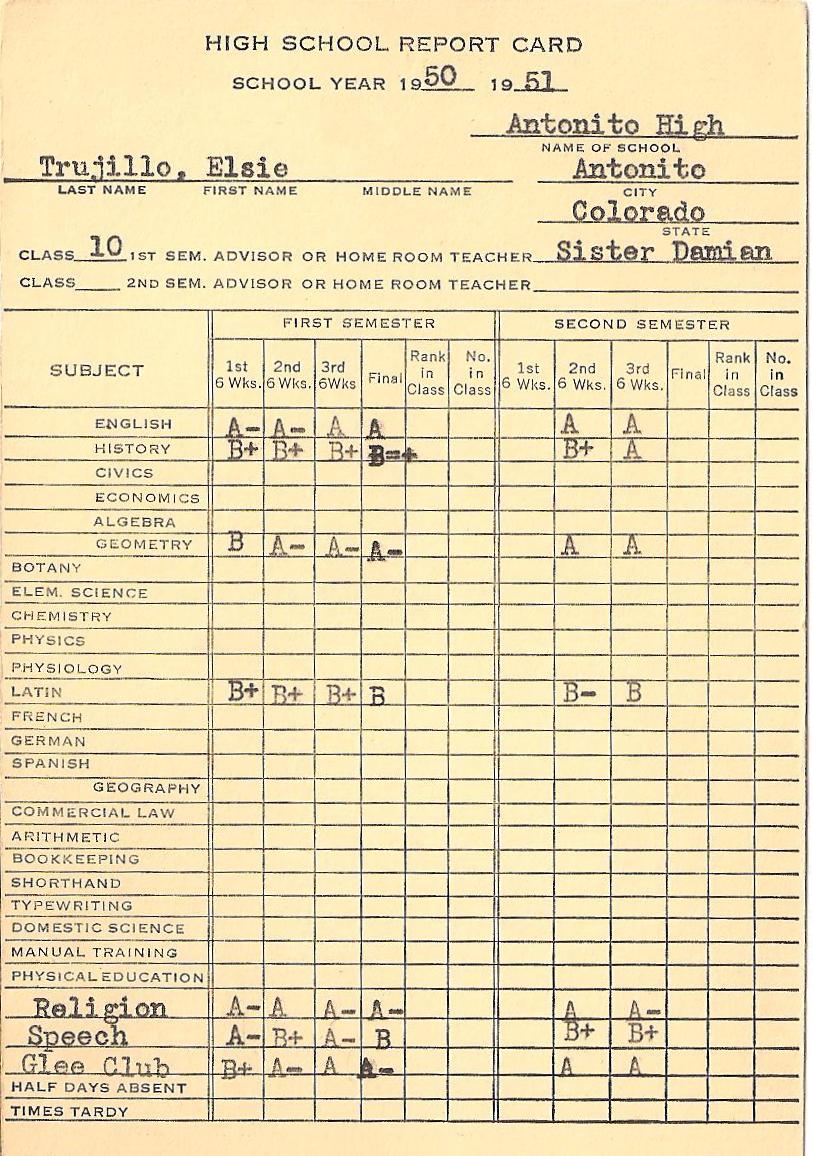 HIGH SCHOOL REPORT CARD
SCHOOL YEAR 1950 1951
Antonito High
NAME OF SCHOOL
Trujillo, Elsie Antonito
LAST NAME FIRST NAME MIDDLE NAME CITY
Colorado
STATE
CLASS 10 1ST SEM. ADVISOR OR HOME ROOM TEACHER Sister Damian
CLASS 2ND SEM. ADVISOR OR HOME ROOM TEACHER
FIRST SEMESTER SECOND SEMESTER
SUBJECT 1st 6 Wks. 2nd 6 Wks. 3rd 6Wks Final Rank in Class No. in Class 1st 6 Wks. 2nd 6 Wks. 3rd 6 Wks. Final Rank in Class No. in Class
ENGLISH A- A- A A A A
HISTORY B+ B+ B+ B=+ B+ A
CIVICS
ECONOMICS
ALGEBRA
GEOMETRY B A- A- A- A A
BOTANY
ELEM. SCIENCE
CHEMISTRY
PHYSICS
PHYSIOLOGY
LATIN B+ B+ B+ B B- B
FRENCH
GERMAN
SPANISH
GEOGRAPHY
COMMERCIAL LAW
ARITHMETIC
BOOKKEEPING
SHORTHAND
TYPEWRITING
DOMESTIC SCIENCE
MANUAL TRAINING
PHYSICAL EDUCATION
Religion A- A A- A- A A-
Speech A- B+ A- B B+ B+
Glee Club B+ A- A A- A A
HALF DAYS ABSENT
TIMES TARDY